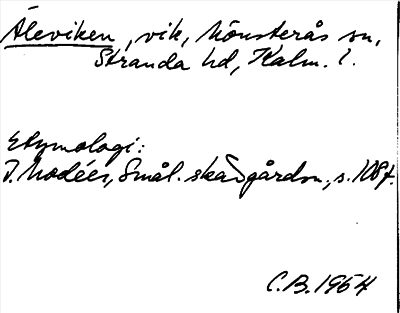 Åleviken, vik, Mönsterås sn,
Stranda hd, Kalm. l.
Etymologi:
I. Modéer, Smål. skärgårdsn., s. 108f.
C.B. 1954